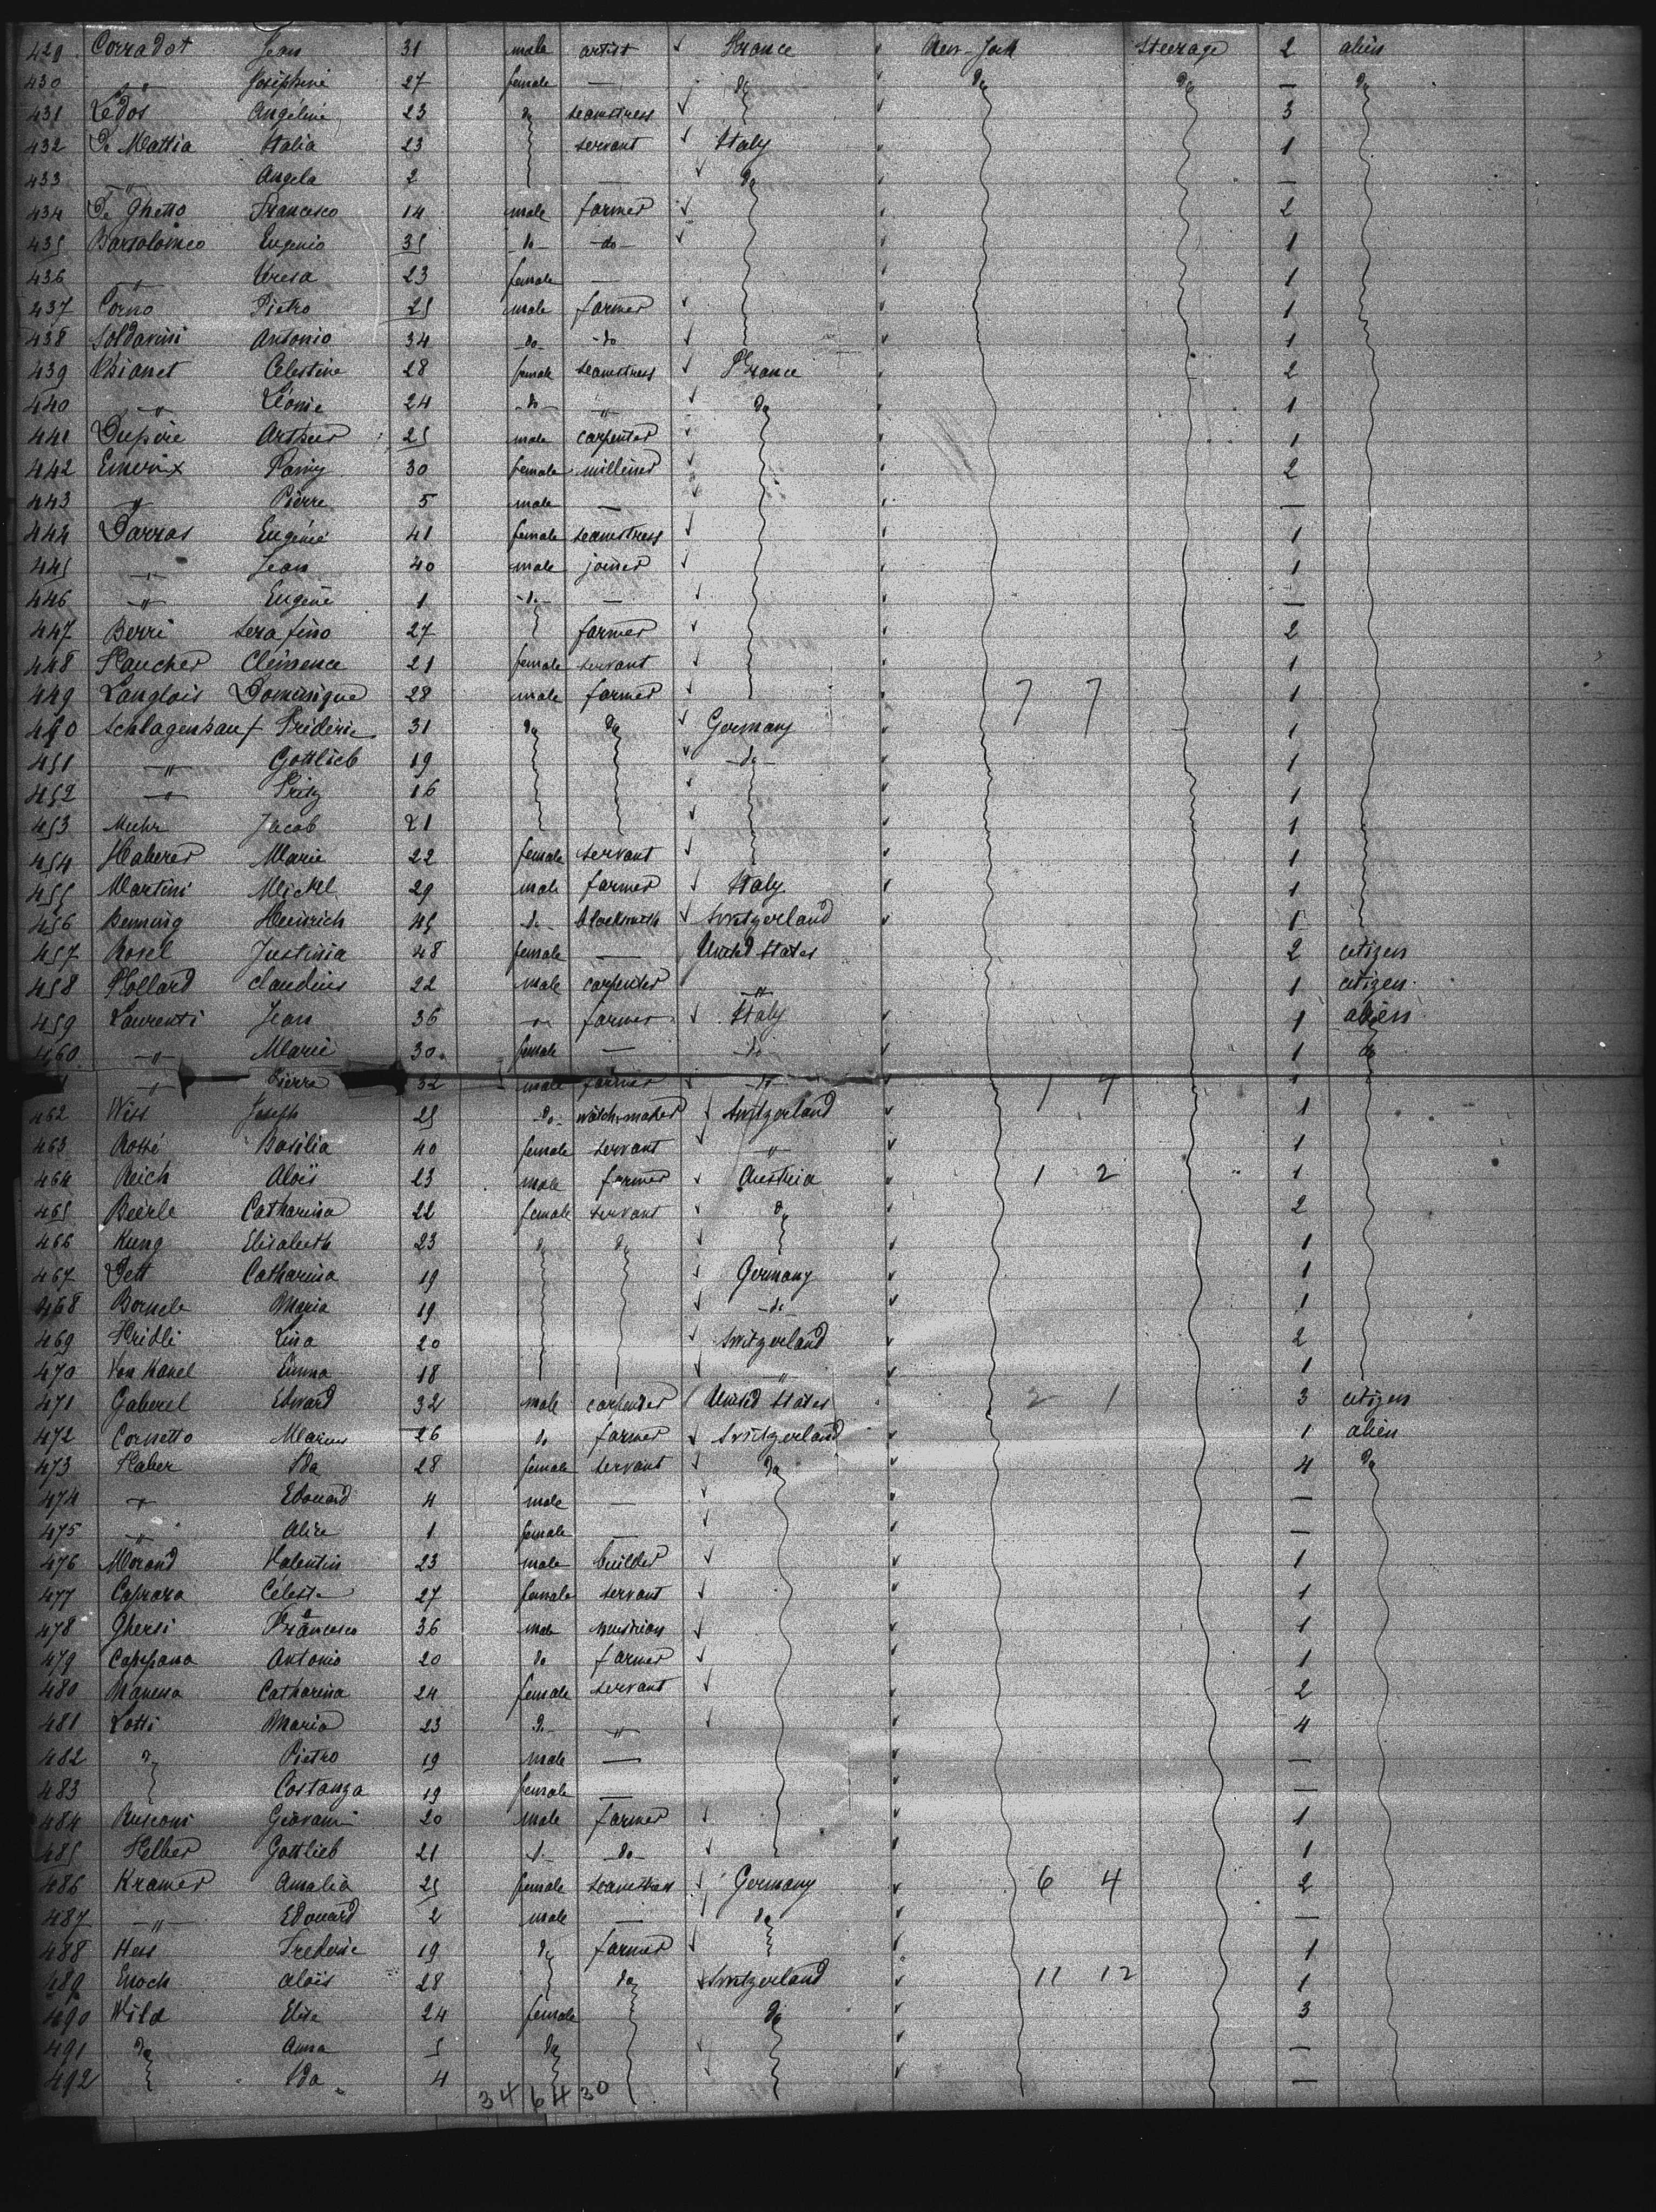 429 Corradot Jean 31 male artist France New-York Steerage 2 alien
430 " Joséphine 27 female — do do do — do
431 Ledos Angéline 23 do seamstress 3
432 De Mattia Italia 23 servant Italy 1
433 " Angela 2 — do —
434 De Ghetto Francesco 14 male farmer 2
435 Bartolomeo Eugenio 35 do do 1
436 " Teresa 23 female — 1
437 Corno Pietro 25 male farmer 1
438 Soldavini Antonio 34 do do 1
439 Celestine 28 female seamstress France 2
440 " Léonie 24 do " do 1
441 Dupire Arthur 25 male carpenter 1
442 Fanny 30 female milliner 2
443 " Pierre 5 male — —
444 Darras Eugénie 41 female seamstress 1
445 " Jean 40 male joiner 1
446 " Eugène 1 do — —
447 Berri Serafino 27 farmer 2
448 Faucher Clémence 21 female servant 1
449 Langlois Dominique 28 male farmer 7 7 1
450 Schlagenhauf Fréderic 31 do do Germany 1
451 " Gottlieb 19 do 1
452 " Fritz 16 1
453 Muhr Jacob 21 1
454 Haberer Marie 22 female servant 1
455 Martini Michel 29 male farmer Italy 1
456 Benning Heinrich 45 do blacksmith Switzerland 1
457 Rosel Justinia 48 female — United States 2 citizen
458 Hollard Claudius 22 male carpenter " 1 citizen
459 Laurenti Jean 36 " farmer Italy 1 alien
460 " Marie 30 female — do 1 do
1 " Pierre 32 male farmer " 1 4 1
462 Wiss Joseph 25 do watchmaker Switzerland 1
463 Rossé Basilia 40 female servant " 1
464 Reich Aloïs 23 male farmer Austria 1 2 1
465 Beierle Catharina 22 female servant do 2
466 Kung Elisabeth 23 do do 1
467 Dett Catharina 19 Germany 1
468 Bornele Maria 19 do 1
469 Fridli Lina 20 Switzerland 2
470 Von Kanel Emma 18 " 1
471 Gaberel Edward 32 male carpenter United States 2 1 3 citizen
472 Cornetto Marius 26 do farmer Switzerland 1 alien
473 Faber Ida 28 female servant do 4 do
474 " Edouard 4 male — —
475 " Alice 1 female — —
476 Morand Valentin 23 male builder 1
477 Caprara Céleste 27 female servant 1
478 Ghersi Francesco 36 male musician 1
479 Cappana Antonio 20 do farmer 1
480 Manena Catharina 24 female servant 2
481 Lotti Maria 23 do " 4
482 do Pietro 19 male — —
483 Costanza 19 female — —
484 Rusconi Giovanni 20 male farmer 1
485 Helber Gottlieb 21 do do 1
486 Kramer Amalia 25 female seamstress Germany 6 4 2
487 " Edouard 2 male — do —
488 Hess Frederic 19 do farmer 1
489 Enoch Aloïs 28 do Switzerland 11 12 1
490 Wild Elise 24 female do 3
491 do Anna 5 do —
492 Ida 4 —
34 64 30